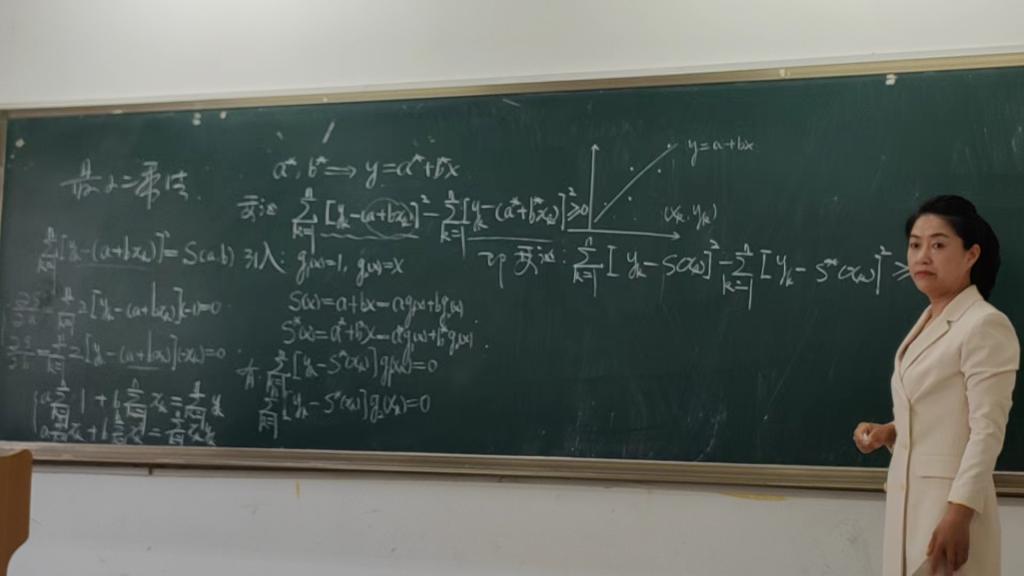 最小二乘法
\sum_{k=1}^{n}[y_k-(a+bx_k)]^2=S(a,b)
\frac{∂S}{∂a}=\sum_{k=1}^{n}2[y_k-(a+bx_k)](-1)=0
\frac{∂S}{∂b}=\sum_{k=1}^{n}2[y_k-(a+bx_k)](-x_k)=0
a\sum_{k=1}^{n}1+b\sum_{k=1}^{n}x_k=\sum_{k=1}^{n}y_k
a\sum_{k=1}^{n}x_k+b\sum_{k=1}^{n}x_k^2=\sum_{k=1}^{n}x_ky_k
a^*,b^*⟹y=a^*+b^*x
要证 \sum_{k=1}^{n}[y_k-(a+bx_k)]^2-\sum_{k=1}^{n}[y_k-(a^*+b^*x_k)]^2≥0
引入: g_1(x)=1, g_2(x)=x
S(x)=a+bx=ag_1(x)+bg_2(x)
S^*(x)=a^*+b^*x=a^*g_1(x)+b^*g_2(x).
有 \sum_{k=1}^{n}[y_k-S^*(x_k)]g_1(x_k)=0
\sum_{k=1}^{n}[y_k-S^*(x_k)]g_2(x_k)=0
y=a+bx
(x_k,y_k)
即要证: \sum_{k=1}^{n}[y_k-S(x_k)]^2-\sum_{k=1}^{n}[y_k-S^*(x_k)]^2≥